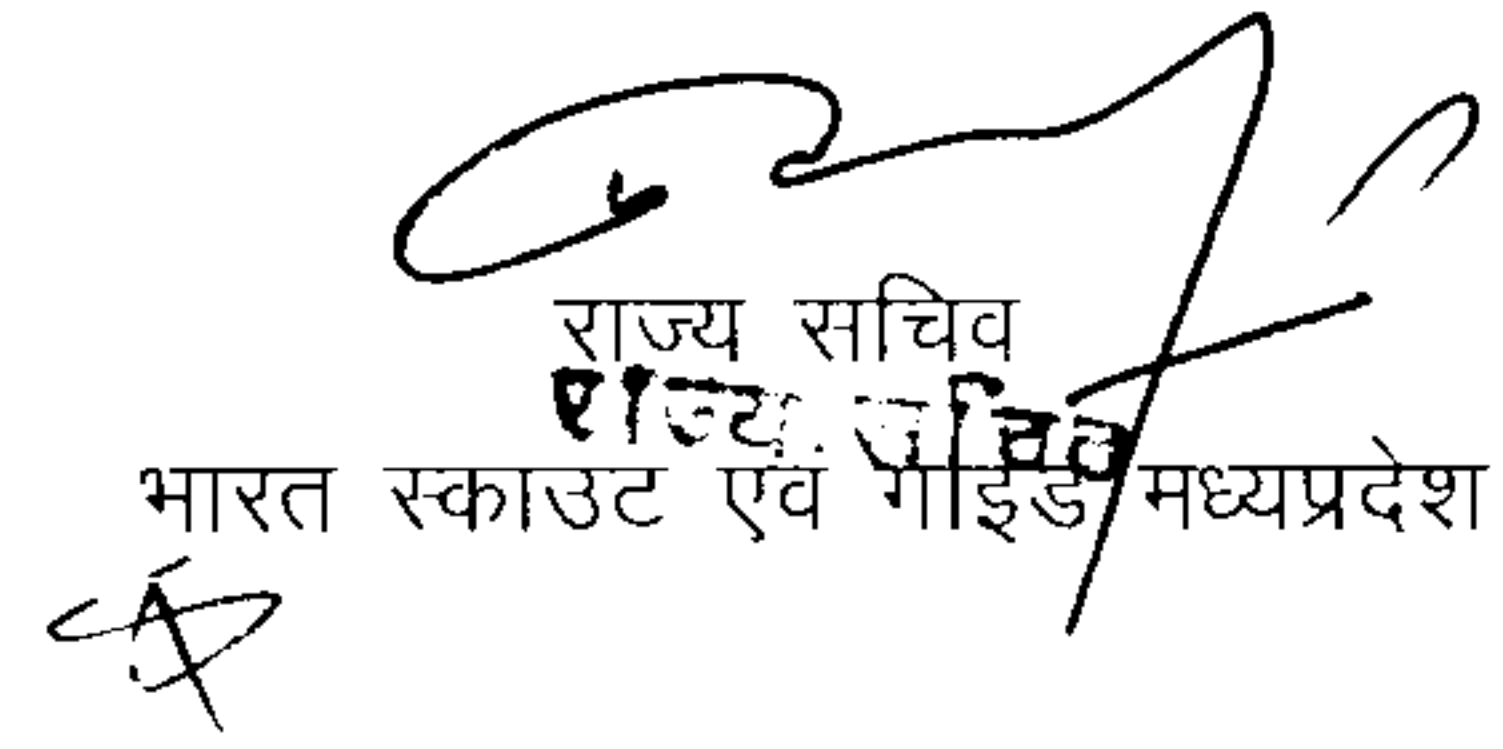 राज्य सचिव
राज्य सचिव
भारत स्काउट एवं गाईड मध्यप्रदेश